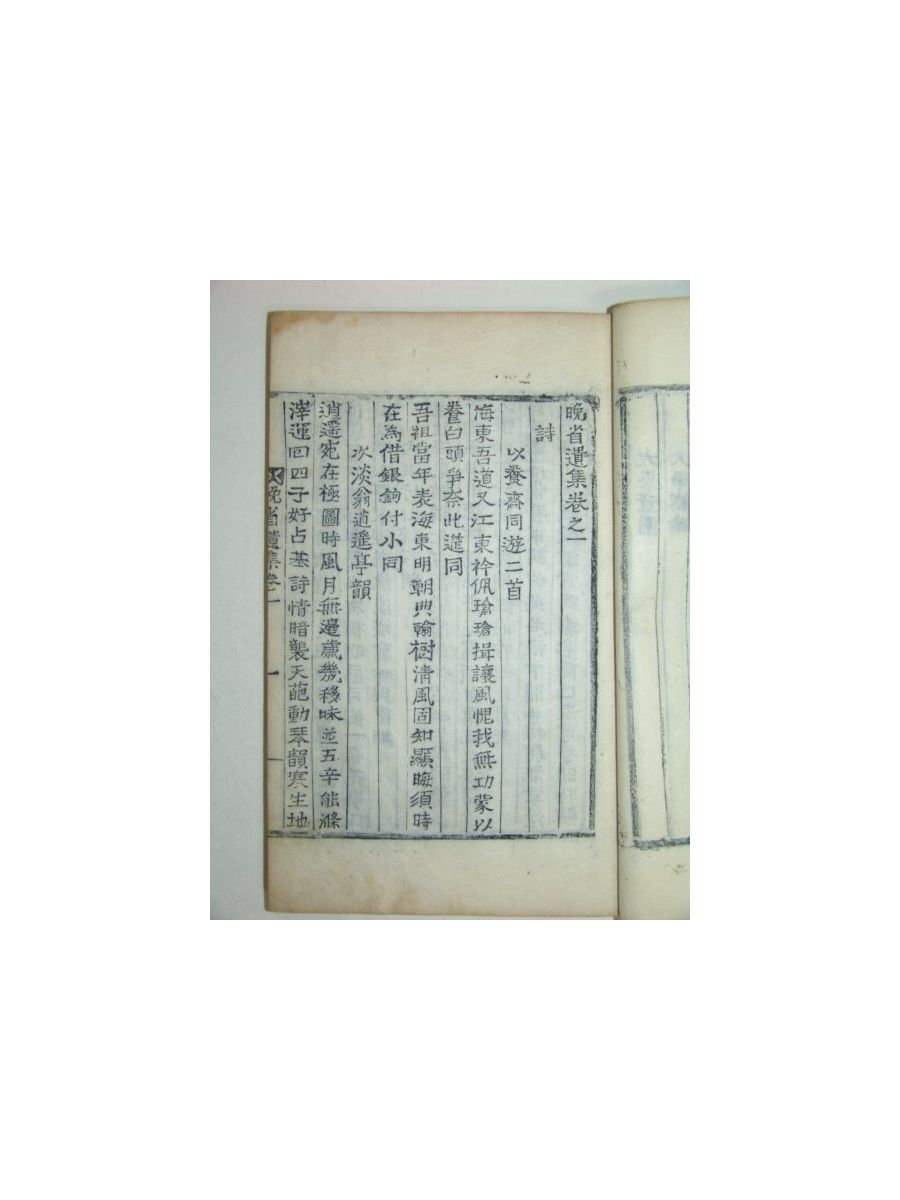 晩省遺集卷之一
詩
以養齋同遊二首
海東吾道又江東衿佩瑲瑲揖讓風愧我無功蒙以
養白頭爭奈此筵同
吾祖當年表海東明朝典翰樹清風固知顯晦須時
在為借銀鉤付小同
次淡翁逍遥亭韻
逍遥宛在極圖時風月無邉歲幾移味並五辛能滌
滓運回四子好占基詩情暗襲天葩動琴韻寒生地
晩省遺集卷一 一